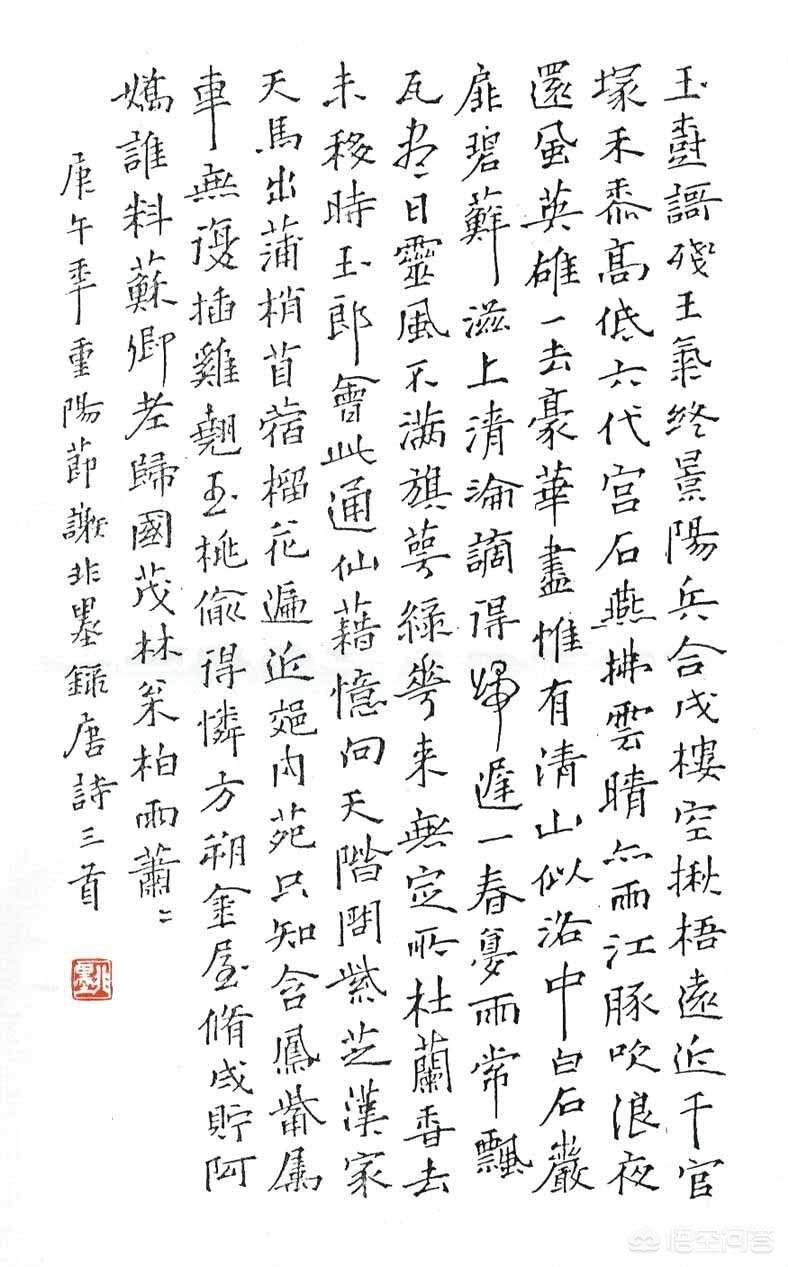 玉樹謌殘王氣終景陽兵合戍樓空楸梧遠近千官
塚禾黍高低六代宮石燕拂雲晴亦雨江豚吹浪夜
還風英雄一去豪華盡惟有清山似洛中白石巖
扉碧蘚滋上清淪謫得歸遲一春夢雨常飄
瓦盡日靈風不滿旗萼綠華来無定所杜蘭香去
未移時玉郎會此通仙藉憶向天階問紫芝漢家
天馬出蒲梢苜蓿榴花遍近郊内苑只知含鳳觜屬
車無復插雞翹玉桃偷得憐方朔金屋脩成貯阿
嬌誰料蘇卿老歸國茂林松柏雨蕭〻
庚午年重陽節謝非墨錄唐詩三首
非墨
悟空问答